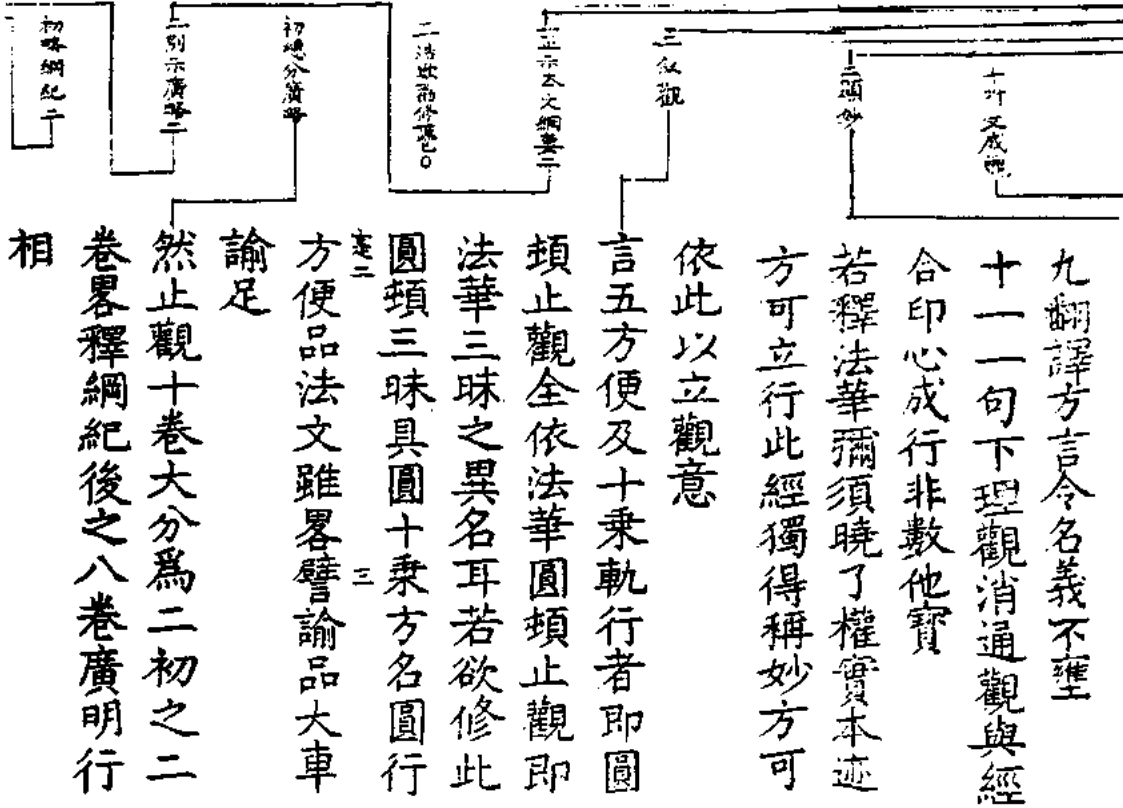 十附文成觀
二頌妙
三叙觀
正示本文綱要二
二結歎勸修踪已○
初總分廣略
二別示廣略二
初略綱紀二
九翻譯方言令名義不壅
十一一句下理觀消通觀與經
合印心成行非數他寳
若釋法華彌須曉了權實本迹
方可立行此經獨得稱妙方可
依此以立觀意
言五方便及十乗軌行者即圓
頓止觀全依法華圓頓止觀即
法華三昧之異名耳若欲修此
圓頓三昧具圓十乗方名圓行
二
三
方便品法文雖畧譬諭品大車
諭足
然止觀十卷大分爲二初之二
卷畧釋綱紀後之八卷廣明行
相